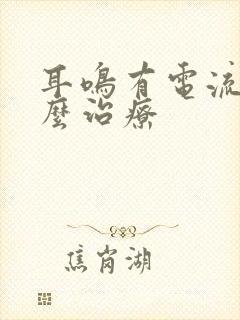 耳鳴有電流
麼治療
焦岗湖